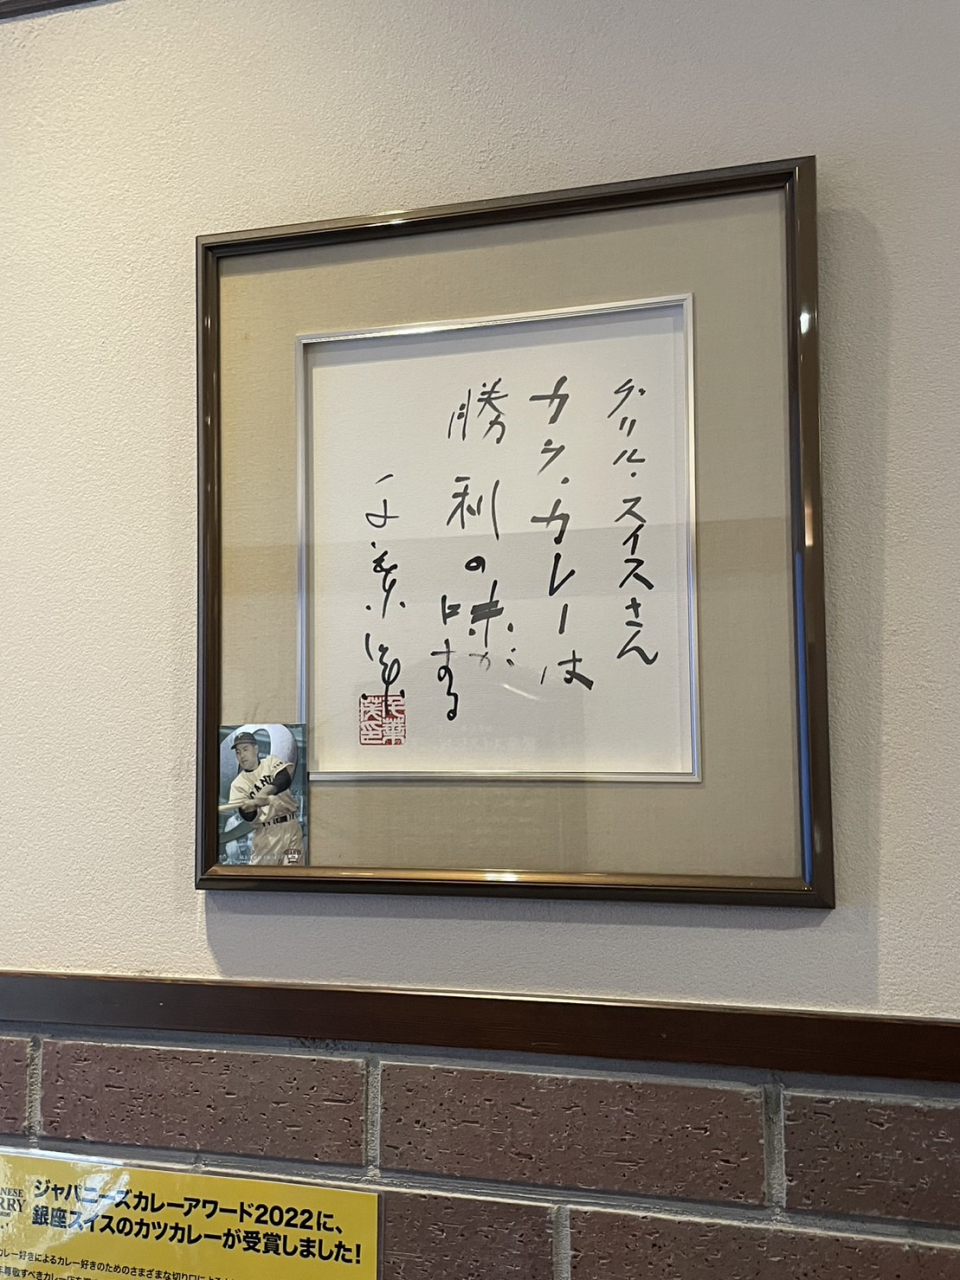 グリル・スイスさん
カツ・カレーは
勝利の味が
する
千葉茂
ジャパニーズカレーアワード2022に、
銀座スイスのカツカレーが受賞しました!
カレー好きによるカレー好きのためのさまざまな切り口による